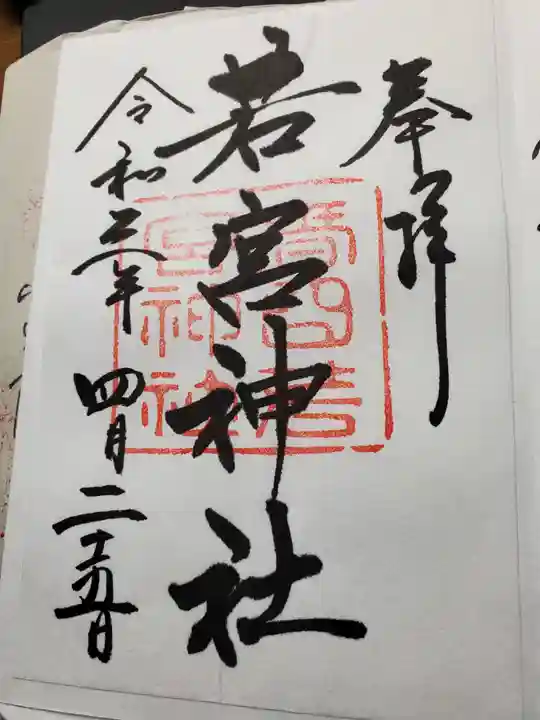 奉拝
若宮神社
令和三年四月二十五日